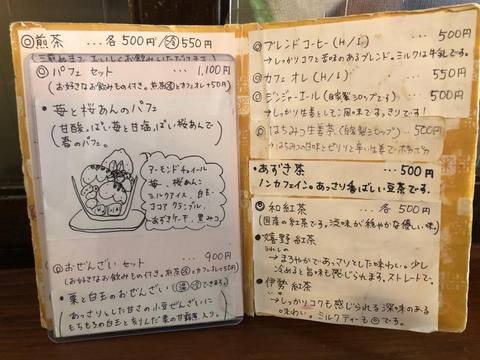 ◎煎茶 ...各500円/㊅550円
◎パフェセット ... 1,100円
(お好きなお飲みもの付き。煎茶㊅とカフェオレ+50円)
・苺と桜あんのパフェ
(甘酸っぱい苺と甘塩っぱい桜あんで
春のパフェ。
アーモンドチュイール
苺、桜あんこ
ミルクアイス、白玉
ココアクランブル、
あずきケーキ、黒みつ
◎おぜんざいセット ... 900円
(お好きなお飲みもの付き。煎茶㊅とカフェオレ+50円)
・栗と白玉のおぜんざい
あっさりとした甘さの小豆ぜんざいに
もちもちの白玉と刻んだ栗の甘露煮入り。
◎ブレンドコーヒー(H/I) ... 500円
→しっかりコクと苦味のあるブレンド。ミルクは牛乳です。
◎カフェオレ(H/I) ... 550円
◎ジンジャーエール(自家製シロップです) ... 500円
→しっかり生姜とレモン風味ですっきりです!
◎はちみつ生姜茶(自家製シロップ) ... 500円
→はちみつの甘味とピリリと辛い生姜でポカポカ
・あずき茶 ... 500円
ノンカフェイン。あっさり香ばしい豆茶です。
◎和紅茶 ... 各500円
(国産の紅茶です。渋味が穏やかな優しい味。)
・嬉野紅茶
うれしの
→まろやかであっさりとした味わい。少し
冷めると旨味も感じられます。ストレートで。
・伊勢紅茶
→しっかりコクも感じられる深味のある
味わい。ミルクティーも◎です。